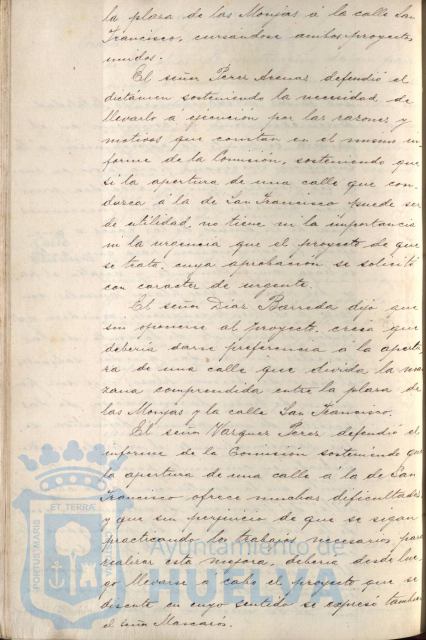 la plaza de las Monjas á la calle San
Francisco, cursándose ambos proyectos
unidos.
El señor Perez Arenas defendió el
dictámen sosteniendo la necesidad de
llevarlo a ejecución por las razones y
motivos que constan en el mismo in-
forme de la Comisión, sosteniendo que
si la apertura de una calle que con-
duzca á la de San Francisco puede ser
de utilidad, no tiene ni la importancia
ni la urgencia que el proyecto de que
se trata, cuya aprobación se solicitó
con caracter de urgente.
El señor Diaz Barreda dijo que
sin oponerse al proyecto, creia que
deberia darse preferencia á la apertu-
ra de una calle que divida la man
zana comprendida entre la plaza de
las Monjas y la calle San Francisco.
El señor Vazquez Perez defendió el
informe de la Comisión sosteniendo que
la apertura de una calle á la de San
Francisco ofrece muchas dificultades
y que sin perjuicio de que se sigan
practicando los trabajos necesarios para
realizar esta mejora, deberia desde lue-
go llevarse á cabo el proyecto que se
discute en cuyo sentido se expresó tambien
el señor Mascarós.
ET TERRÆ
PORTUS MARIS
Ayuntamiento de
HUELVA